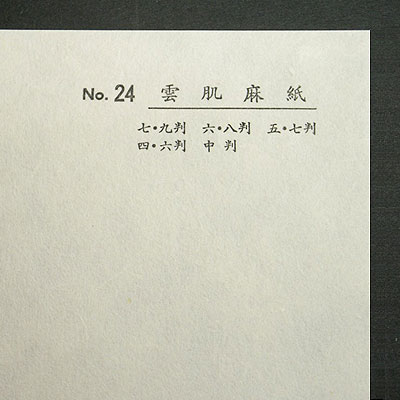 No. 24 雲肌麻紙
七・九判 六・八判 五・七判
四・六判 中判